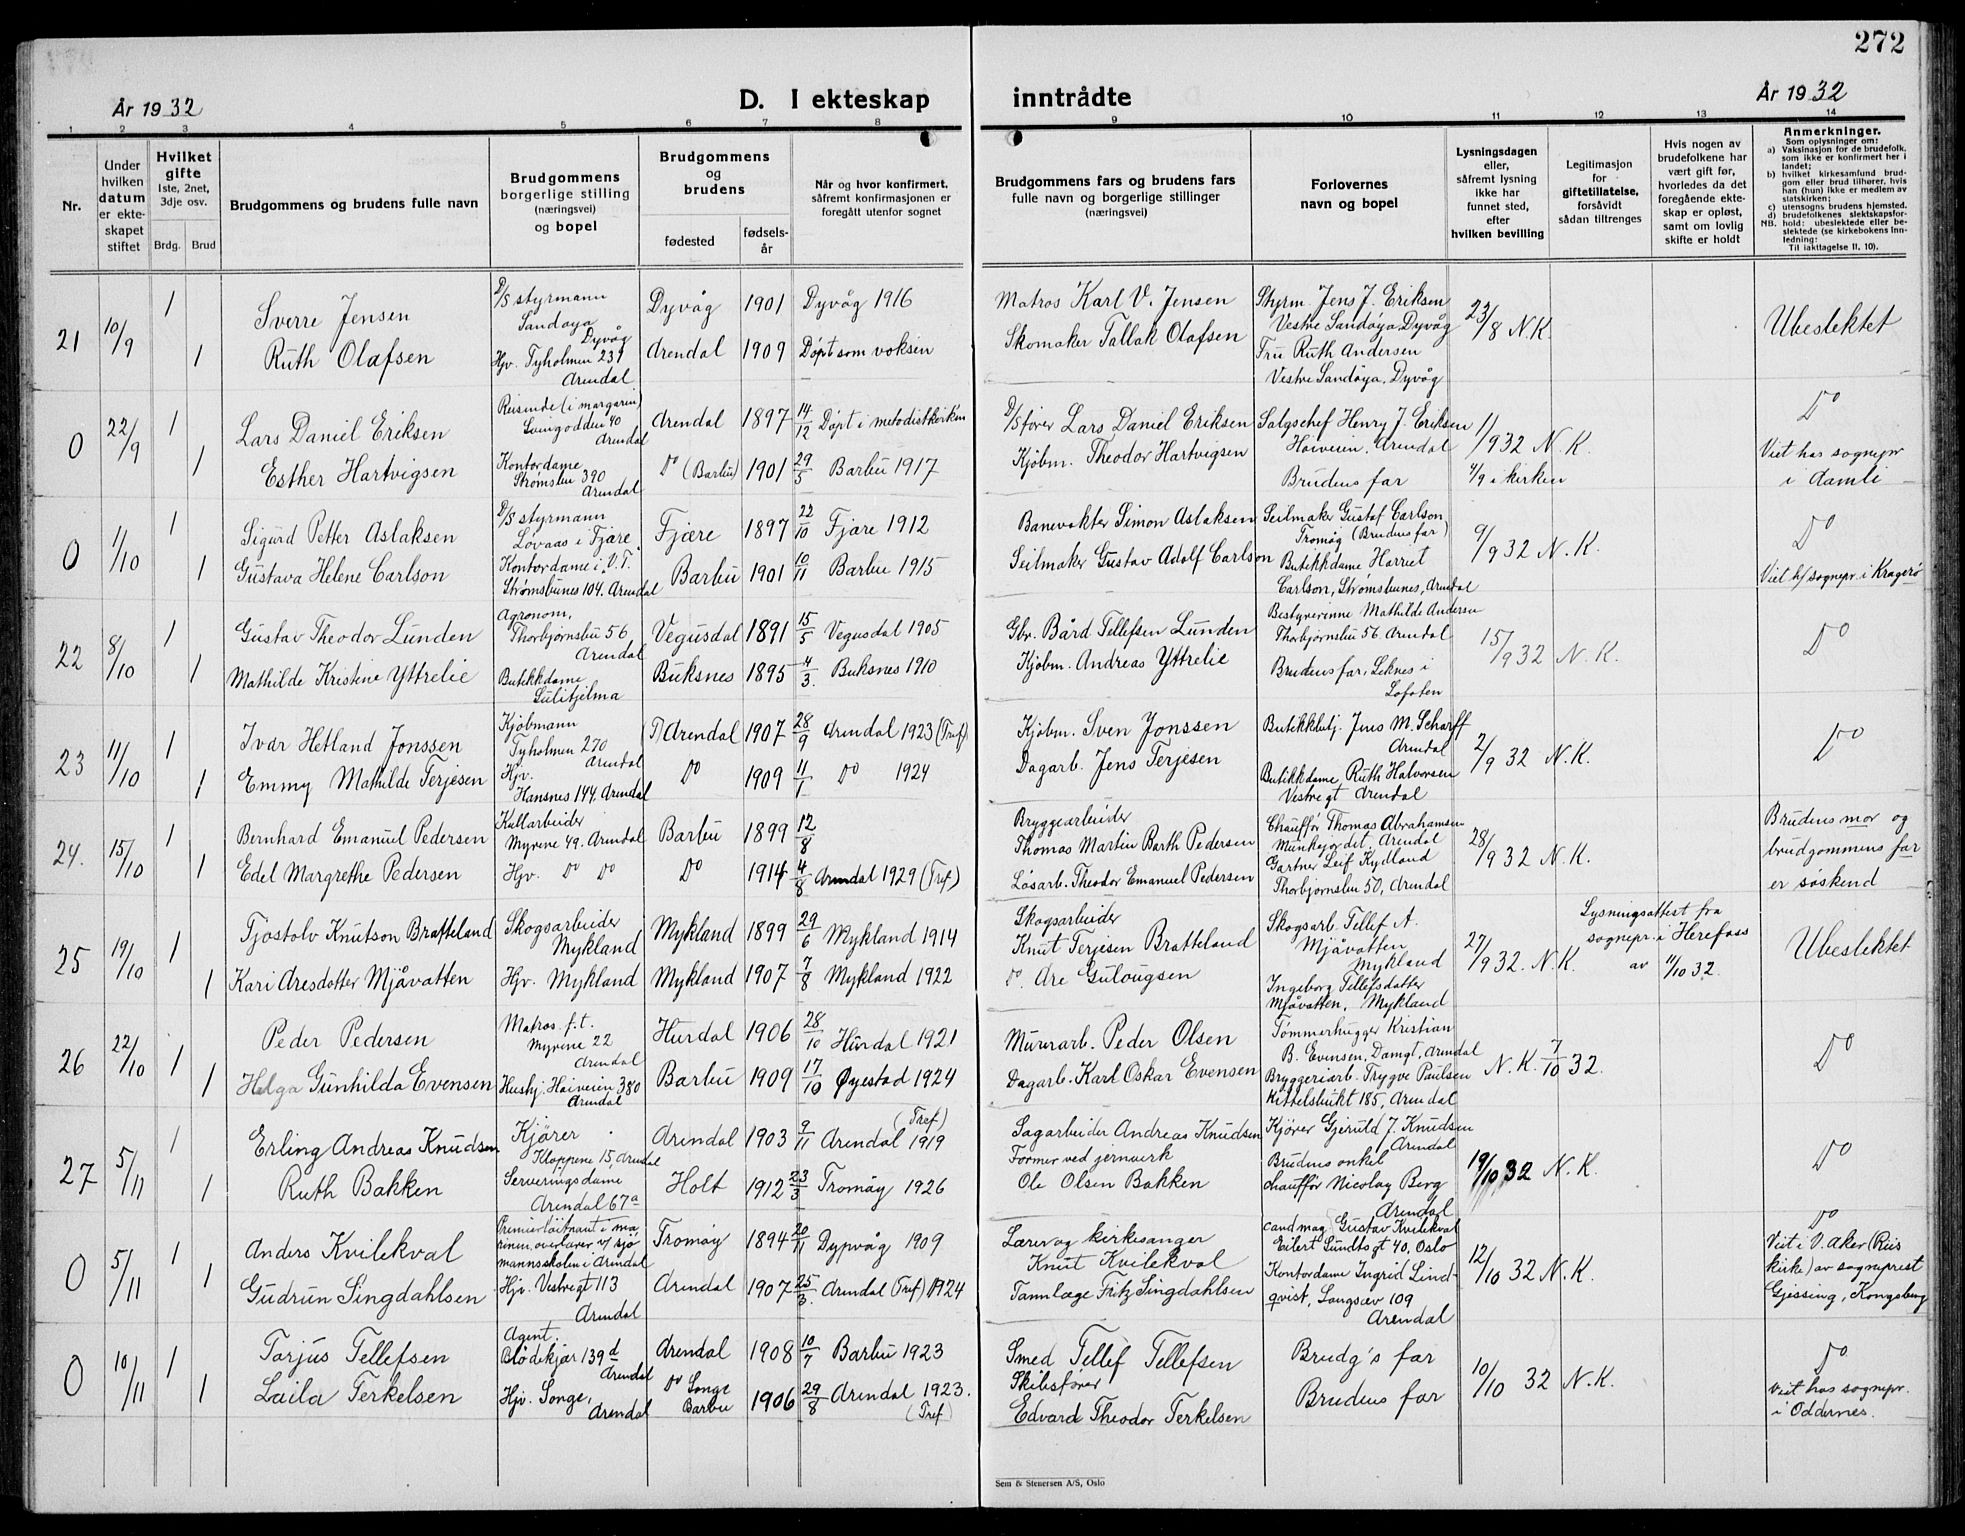 272
År 1932
D. I ekteskap
inntrådte
År 1932
1 2 3 4 5 6 7 8 9 10 11 12 13 14
Nr.
Under
hvilken
datum
er ekte-
skapet
stiftet
Hvilket
gifte
1ste, 2net,
3dje osv.
Brdg. Brud
Brudgommens og brudens fulle navn
Brudgommens
borgerlige stilling
(næringsvei)
og bopel
Brudgommens
og
brudens
fødested
fødsels-
år
Når og hvor konfirmert,
såfremt konfirmasjonen er
foregått utenfor sognet
Brudgommens fars og brudens fars
fulle navn og borgerlige stillinger
(næringsvei)
Forlovernes
navn og bopel
Lysningsdagen
eller,
såfremt lysning
ikke har
funnet sted,
efter
hvilken bevilling
Legitimasjon
for
giftetillatelse,
forsåvidt
sådan tiltrenges
Hvis nogen av
brudefolkene har
vært gift før,
hvorledes da det
foregående ekte-
skap er opløst,
samt om lovlig
skifte er holdt
Anmerkninger.
Som oplysninger om:
a) Vaksinasjon for de brudefolk,
som ikke er konfirmert her i
landet;
b) hvilket kirkesamfund brud-
gom eller brud tilhører, hvis
han (hun) ikke er medlem av
statskirken;
c) utensogns brudens hjemsted.
d) brudefolkenes slektskapsfor-
NB. hold: ubeslektede eller be-
slektede (se kirkebokens Inn-
ledning:
Til iakttagelse II, 10).
21 10/9 1 Sverre Jensen D/S styrmann Sandøya Dyvåg Dyvåg 1901 Dyvåg 1916 Matros Karl V. Jensen Styrm. Jens J. Eriksen Vestre Sandøya, Dyvåg 23/8 N.K. Ubeslektet
1 Ruth Olafsen Hjv. Tyholmen 231 Arendal Arendal 1909 Døpt som voksen Skomaker Tallak Olafsen Fru Ruth Andersen Vestre Sandøya, Dyvåg
0 22/9 1 Lars Daniel Eriksen Reisende (i margarin) Arendal Arendal 1897 14/12 Døpt i metodistkirken D/S fører Lars Daniel Eriksen Salgschef Henry J. Eriksen Høiveien, Arendal 1/9 32 N.K. Do
1 Esther Hartvigsen Kontordame Strømsbu 390 Arendal Do (Barbu) 1901 29/5 Barbu 1917 Kjøbm. Theodor Hartvigsen Brudens far 4/9 i kirken Viet hos sognepr i Åmli
0 1/10 1 Sigurd Petter Aslaksen D/S styrmann Løvaas i Fjære Fjære 1897 22/10 Fjære 1912 Banevokter Simon Aslaksen Seilmaker Gustaf Carlson Tromøy (Brudens far) 9/9 32 N.K. Do
1 Gustava Helene Carlson Kontordame i "V.T." Strømsbunes 104. Arendal Barbu 1901 10/11 Barbu 1915 Seilmaker Gustav Adolf Carlson Butikkdame Harriet Carlson, Strømsbunes, Arendal Viet h/ sognepr. i Kragerø
22 8/10 1 Gustav Theodor Lunden Agronom, Thorbjørnsbu 56 Arendal Vegusdal 1891 15/5 Vegusdal 1905 Gbr. Bård Tellefsen Lunden Bestyrerinne Mathilde Andersen Thorbjørnsbu 56 Arendal 15/9 32 N.K. Do
1 Mathilde Kristine Yttrelie Butikkdame Sulitjelma Buksnes 1895 4/3 Buksnes 1910 Kjøbm. Andreas Yttrelie Brudens far, Leknes i Lofoten
23 11/10 1 Ivar Hetland Jonssen Kjøbmann Tyholmen 270 Arendal (T) Arendal 1907 28/9 Arendal 1923 (Tref) Kjøbm. Sven Jonssen Butikkbetj. Jens M. Scharff Arendal 2/9 32 N.K. Do
1 Emmy Mathilde Terjesen Hjv. Hansnes 144. Arendal Do 1909 11/1 Do 1924 Dagarb. Jens Terjesen Butikkdame Ruth Halvorsen Vestregt Arendal
24. 15/10 1 Bernhard Emanuel Pedersen Kullarbeider Myrene 49. Arendal Barbu 1899 12/8 Bryggearbeider Thomas Martin Barth Pedersen Chauffør Thomas Abrahamsen Munkejordet, Arendal 28/9 32 N.K. Brudens mor og brudgommens far er søskend
1 Edel Margrethe Pedersen Hjv. Do Do Do 1914 4/8 Arendal 1929 (Tref) Løsarb. Theodor Emanuel Pedersen Gartner Leif Kydland Thorbjørnsbu 50, Arendal
25 19/10 1 Tjostolv Knutson Bratteland Skogsarbeider Mykland Mykland 1899 29/6 Mykland 1914 Skogsarbeider Knut Terjesen Bratteland Skogsarb. Tellef A. Mjåvatten Mykland 27/9 32. N.K. Lysningsattest fra sognepr. i Herefoss av 11/10 32. Ubeslektet
1 Kari Aresdotter Mjåvatten Hjv. Mykland Mykland 1907 7/8 Mykland 1922 Do. Are Gulougsen Ingeborg Tellefsdatter Mjåvatten, Mykland
26 22/10 1 Peder Pedersen Matros f.t. Myrene 22 Arendal Hurdal 1906 28/10 Hurdal 1921 Murerarb. Peder Olsen Tømmerhugger Kristian B. Evensen, Damgt, Arendal N.K. 7/10 32. Do
1 Helga Gunhilda Evensen Hushj. Høiveien 380 Arendal Barbu 1909 17/10 Øyestad 1924 Dagarb. Karl Oskar Evensen Bryggeriarb. Trygve Paulsen Kittelsbukt 185, Arendal
27 5/11 1 Erling Andreas Knudsen Kjører Kloppene 15, Arendal Arendal 1903 9/11 Arendal 1919 (Tref) Sagarbeider Andreas Knudsen Kjører Gjeruld J. Knudsen Arendal 19/10 32 N.K. Do
1 Ruth Bakken Serveringsdame Arendal 67a Holt 1912 23/3 Tromøy 1926 Former ved jernverk Ole Olsen Bakken Brudens onkel chauffør Nicolay Berg Arendal
0 5/11 1 Anders Kvilekval Premierløitnant i marinen, overlærer v/ sjømannsskolen i Arendal Tromøy 1894 20/11 Dypvåg 1909 Lærer og kirkesanger Knut Kvilekval cand mag Gustav Kvilekval Eilert Sundtsgt 40, Oslo 12/10 32 N.K. Do
1 Gudrun Singdahlsen Hjv. Vestregt 113 Arendal Arendal 1907 25/3. Arendal (Tref) 1924 Tannlæge Fritz Singdahlsen Kontordame Ingrid Lindqvist, Langsæv 109 Arendal Viet i V. Aker (Ris kirke) av sogneprest Gjessing, Kongsberg
0 10/11 1 Torjus Tellefsen Agent. Blødekjær 139d Arendal Arendal 1908 10/7 Barbu 1923 Smed Tellef Tellefsen Brudg's far 10/10 32 N.K. Do
1 Laila Terkelsen Hjv. Songe, Arendal Do Songe Barbu 1906 29/8 Arendal 1923. (Tref) Skibsfører Edvard Theodor Terkelsen Brudens far Viet hos sognepr. i Oddernes.
Sem & Stenersen A/S, Oslo